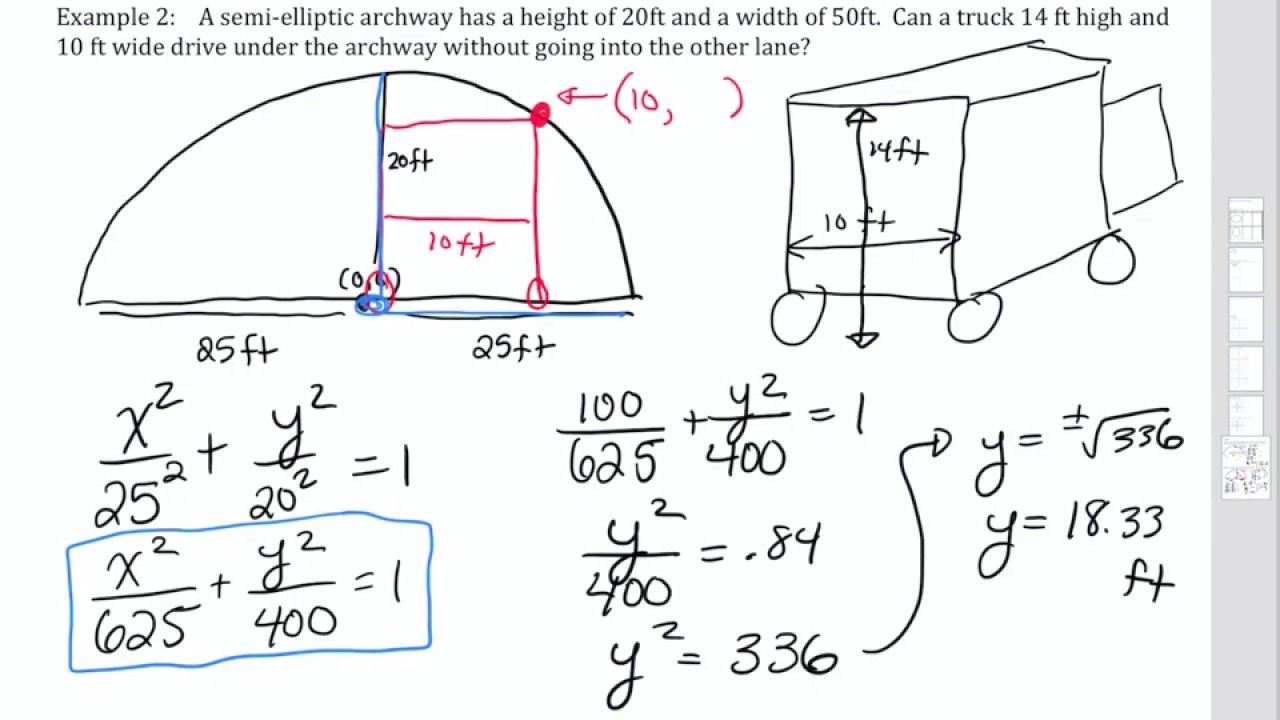 Example 2: A semi-elliptic archway has a height of 20ft and a width of 50ft. Can a truck 14 ft high and
10 ft wide drive under the archway without going into the other lane?
(10, )
20ft
14ft
10 ft
10ft
(0,0)
25ft 25ft
x²/25² + y²/20² = 1
x²/625 + y²/400 = 1
100/625 + y²/400 = 1
y²/400 = .84
y² = 336
y = ±√336
y = 18.33
ft